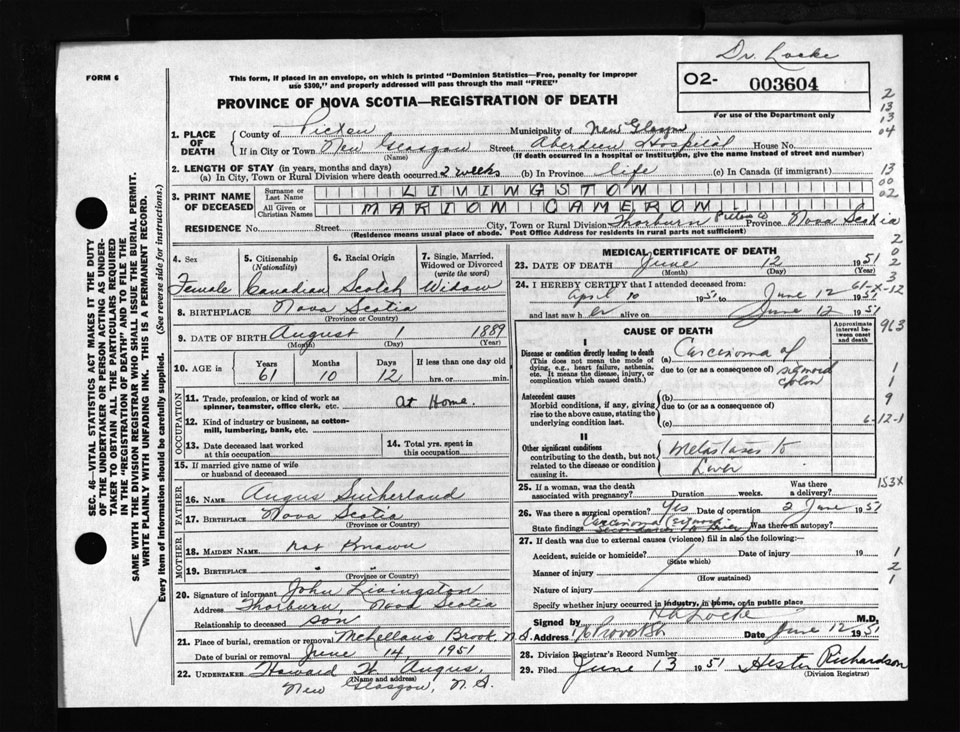 Dr. Locke
FORM 6
This form, if placed in an envelope, on which is printed "Dominion Statistics—Free, penalty for improper
use $300," and properly addressed will pass through the mail "FREE"
O2- 003604
For use of the Department only
PROVINCE OF NOVA SCOTIA—REGISTRATION OF DEATH
1. PLACE OF DEATH
County of Pictou Municipality of New Glasgow
If in City or Town New Glasgow Street Aberdeen Hospital House No.
(Name) (If death occurred in a hospital or institution, give the name instead of street and number)
2. LENGTH OF STAY (in years, months and days)
(a) In City, Town or Rural Division where death occurred 2 weeks (b) In Province life (c) In Canada (if immigrant)
3. PRINT NAME OF DECEASED
Surname or Last Name LIVINGSTON
All Given or Christian Names MARION CAMERON
RESIDENCE No. Street City, Town or Rural Division Thorburn Pictou Co Province Nova Scotia
(Residence means usual place of abode. Post Office Address for residents in rural parts not sufficient)
4. Sex 5. Citizenship (Nationality) 6. Racial Origin 7. Single, Married, Widowed or Divorced (write the word)
Female Canadian Scotch Widow
8. BIRTHPLACE Nova Scotia
(Province or Country)
9. DATE OF BIRTH August 1 1889
(Month) (Day) (Year)
10. AGE in Years Months Days If less than one day old
61 10 12 hrs. or min.
OCCUPATION
11. Trade, profession, or kind of work as
spinner, teamster, office clerk, etc. At Home.
12. Kind of industry or business, as cotton-
mill, lumbering, bank, etc.
13. Date deceased last worked
at this occupation
14. Total yrs. spent in
this occupation
15. If married give name of wife
or husband of deceased
FATHER
16. NAME Angus Sutherland
17. BIRTHPLACE Nova Scotia
(Province or Country)
MOTHER
18. MAIDEN NAME not Known
19. BIRTHPLACE " "
(Province or Country)
20. Signature of informant John Livingston
Address Thorburn, Nova Scotia
Relationship to deceased son
21. Place of burial, cremation or removal McKellans Brook, N.S.
Date of burial or removal June 14, 1951
22. UNDERTAKER Howard W. Angus,
(Name and address)
New Glasgow, N.S.
MEDICAL CERTIFICATE OF DEATH
23. DATE OF DEATH June 12 1951
(Month) (Day) (Year)
24. I HEREBY CERTIFY that I attended deceased from:
April 10 1951 to June 12 1951
and last saw her alive on June 12 1951
CAUSE OF DEATH
Approximate interval between onset and death
I
Disease or condition directly leading to death
(This does not mean the mode of dying, e.g., heart failure, asthenia, etc. It means the disease, injury, or complication which caused death.)
(a) Carcinoma of
due to (or as a consequence of) sigmoid
colon
Antecedent causes
Morbid conditions, if any, giving rise to the above cause, stating the underlying condition last.
(b)
due to (or as a consequence of)
(c)
II
Other significant conditions
contributing to the death, but not related to the disease or condition causing it.
Metastases to
Liver
25. If a woman, was the death
associated with pregnancy? Duration weeks. Was there a delivery?
26. Was there surgical operation? Yes Date of operation 2 June 1951
State findings Carcinoma Was there an autopsy?
27. If death was due to external causes (violence) fill in also the following:—
Accident, suicide or homicide? Date of injury 19
(State which)
Manner of injury
(How sustained)
Nature of injury
Specify whether injury occurred in industry, in home, or in public place
Signed by H A Locke M.D.
Address Provost St Date June 12 1951
28. Division Registrar's Record Number
29. Filed June 13 1951 Hester Richardson
(Division Registrar)
2
13
13
04
13
00
02
2
0
2
3
61-X-12
963
1
1
9
6-12-1
153X
1
2
1
SEC. 46—VITAL STATISTICS ACT MAKES IT THE DUTY
OF THE UNDERTAKER OR PERSON ACTING AS UNDER-
TAKER TO OBTAIN ALL THE PARTICULARS REQUIRED
IN THE "REGISTRATION OF DEATH" AND TO FILE THE
SAME WITH THE DIVISION REGISTRAR WHO SHALL ISSUE THE BURIAL PERMIT.
WRITE PLAINLY WITH UNFADING INK. THIS IS A PERMANENT RECORD.
Every item of information should be carefully supplied. (See reverse side for instructions.)